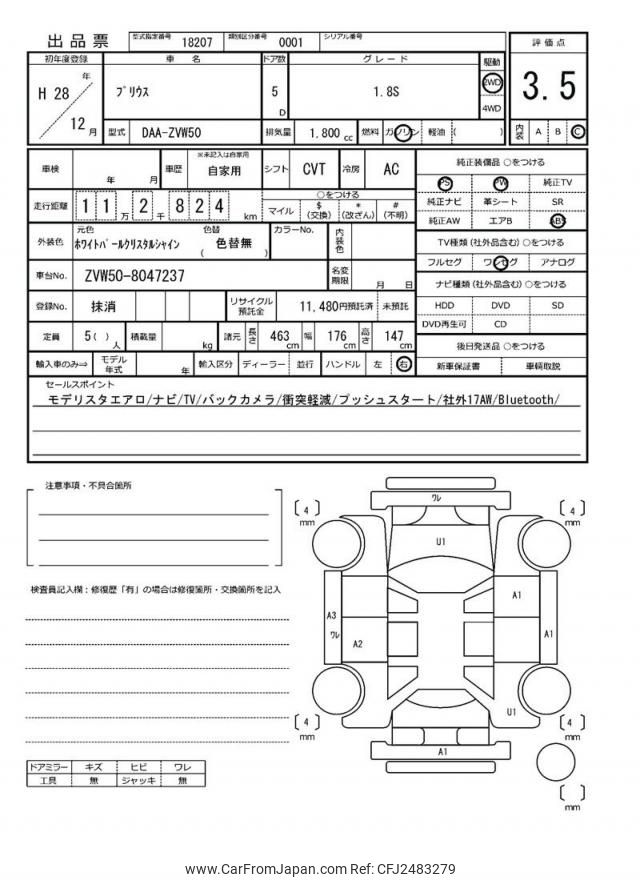 出品票
型式指定番号 18207 類別区分番号 0001 シリアル番号
評価点
3.5
内装 A B C
初年度登録 車名 ドア数 グレード 駆動
H 28 年 12 月
プリウス 5 D 1.8S 2WD 4WD
型式 DAA-ZVW50 排気量 1.800 cc 燃料 ガソリン 軽油 ( )
車検 年 月 車歴 ※未記入は自家用 自家用 シフト CVT 冷房 AC
走行距離 1 1 万 2 千 8 2 4 km
○をつける
マイル $(交換) *(改ざん) #(不明)
外装色 元色 ホワイトパールクリスタルシャイン 色替 ( 色替無 ) カラーNo. 内装色
車台No. ZVW50-8047237 名変期限 月 日
登録No. 抹消 リサイクル預託金 11,480円預託済 未預託
定員 5( )人 積載量 kg 諸元 長さ 463 cm 幅 176 cm 高さ 147 cm
輸入車のみ⇒ モデル年式 年 輸入区分 ディーラー 並行 ハンドル 左 右
純正装備品 ○をつける
PS PW 純正TV
純正ナビ 革シート SR
純正AW エアB ABS
TV種類(社外品含む)○をつける
フルセグ ワンセグ アナログ
ナビ種類(社外品含む)○をつける
HDD DVD SD
DVD再生可 CD
後日発送品 ○をつける
新車保証書 車輌取説
セールスポイント
モデリスタエアロ/ナビ/TV/バックカメラ/衝突軽減/プッシュスタート/社外17AW/Bluetooth/
注意事項・不具合箇所
検査員記入欄:修復歴「有」の場合は修復箇所・交換箇所を記入
ドアミラー キズ ヒビ ワレ
工具 無 ジャッキ 無
ワレ
[ 4 ] mm
[ 4 ] mm
U1
A1
A3
ワレ
A2
A1
U1
[ 4 ] mm
[ 4 ] mm
A1
[ ] mm
www.CarFromJapan.com Ref: CFJ2483279